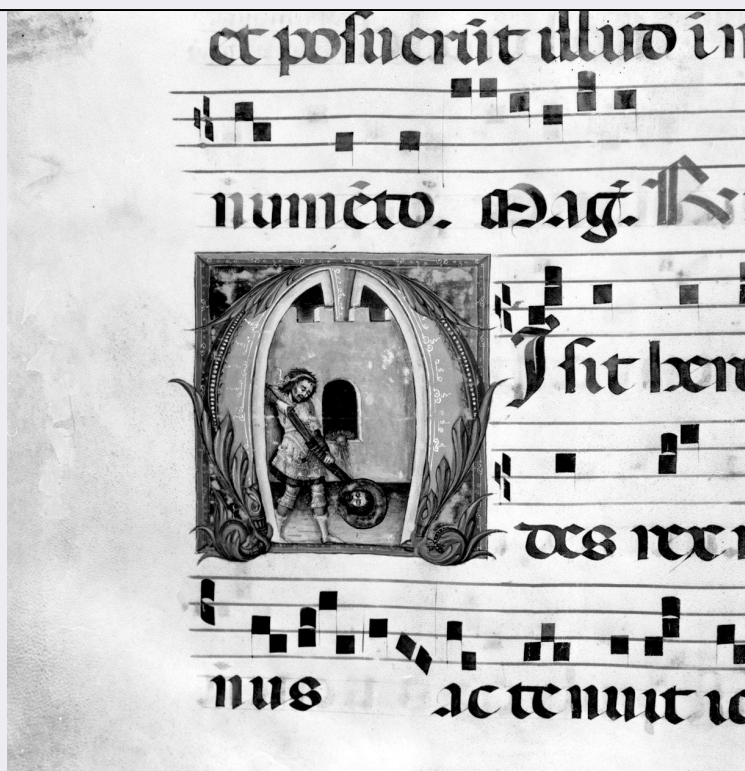 et posuerūt illud in
numēto. Mag. R
M Isit hero
des rex
nus ac tenuit io